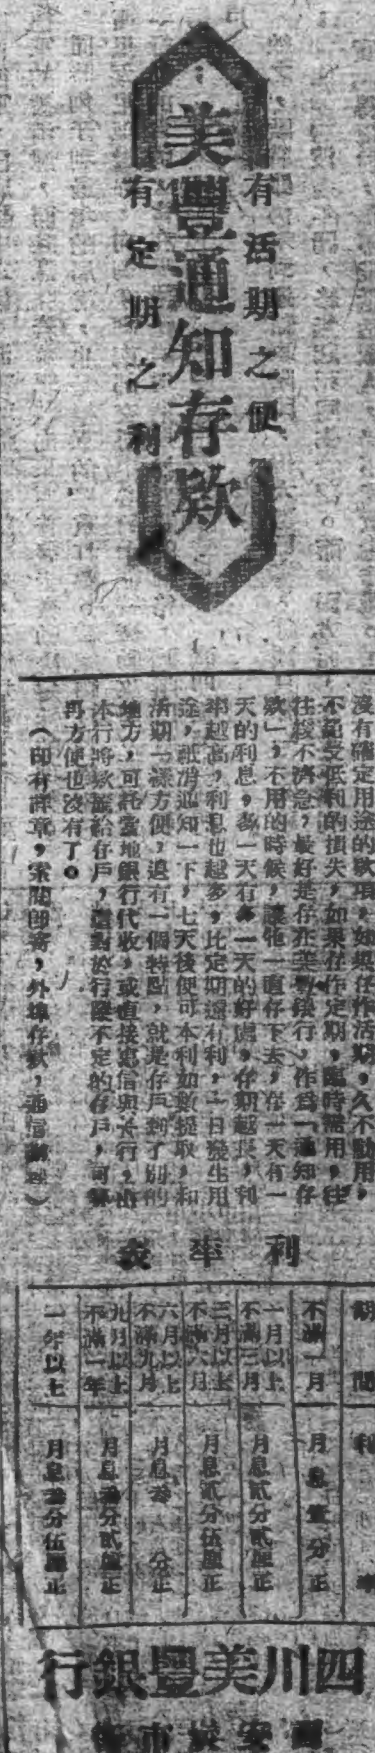 美豐通知存款
有活期之便
有定期之利
沒有確定用途的款項，如果存作活期，久不動用，
不免受低利的損失，如果存作定期，臨時需用，往
往緩不濟急，最好是存在美豐銀行，作爲「通知存
款」，不用的時候，讓他一直存下去，存一天有一
天的利息，多一天有多一天的好處，存期越長，利
率越高，利息也越多，比定期還有利，一旦發生用
途，祇消通知一下，七天後便可本利如數提取，和
活期一樣方便，還有一個特點，就是存戶到了別的
地方，可託當地銀行代收，或直接寫信與本行，由
本行將款匯給存戶，這對於行蹤不定的存戶，可算
再方便也沒有了。
（印有詳章，索閱即寄，外埠存款，通信辦理）
利率表
期間 利率
不滿一月 月息壹分正
一月以上不滿三月 月息貳分貳厘正
三月以上不滿六月 月息貳分伍厘正
六月以上不滿九月 月息叁分正
九月以上不滿一年 月息叁分貳厘正
一年以上 月息叁分伍厘正
四川美豐銀行